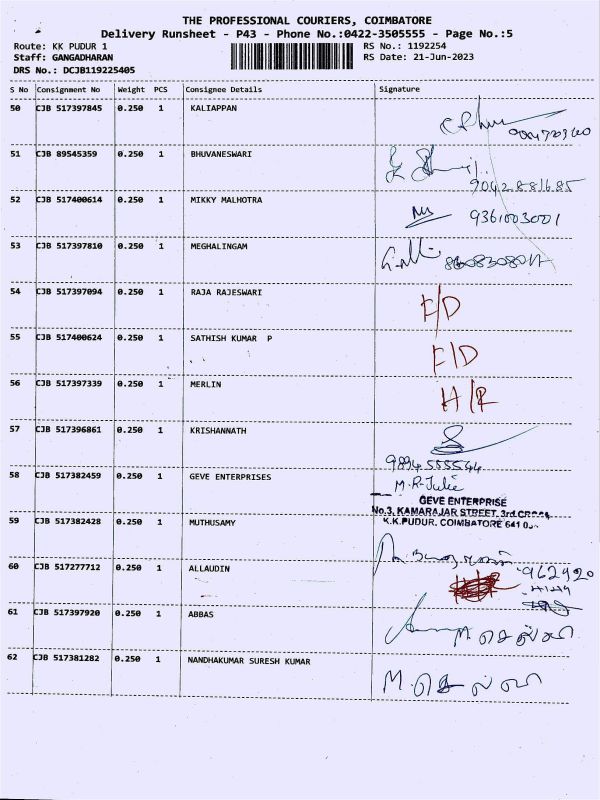 THE PROFESSIONAL COURIERS, COIMBATORE
Delivery Runsheet - P43 - Phone No.:0422-3505555 - Page No.:5
Route: KK PUDUR 1 RS No.: 1192254
Staff: GANGADHARAN RS Date: 21-Jun-2023
DRS No.: DCJB119225405
S No Consignment No Weight PCS Consignee Details Signature
50 CJB 517397845 0.250 1 KALIAPPAN
51 CJB 89545359 0.250 1 BHUVANESWARI
9042881685
52 CJB 517400614 0.250 1 MIKKY MALHOTRA
9361003001
53 CJB 517397810 0.250 1 MEGHALINGAM
54 CJB 517397094 0.250 1 RAJA RAJESWARI F/D
55 CJB 517400624 0.250 1 SATHISH KUMAR P F/D
56 CJB 517397339 0.250 1 MERLIN H/R
57 CJB 517396861 0.250 1 KRISHANNATH
9894555544
58 CJB 517382459 0.250 1 GEVE ENTERPRISES M.R. Julie
GEVE ENTERPRISE
No.3, KAMARAJAR STREET, 3rd
K.K.PUDUR, COIMBATORE
59 CJB 517382428 0.250 1 MUTHUSAMY
60 CJB 517277712 0.250 1 ALLAUDIN
962920
61 CJB 517397920 0.250 1 ABBAS
M. செல்வி
62 CJB 517381282 0.250 1 NANDHAKUMAR SURESH KUMAR
M. செல்வி